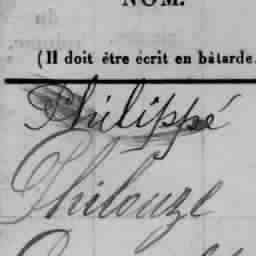 NOM.
(Il doit être écrit en bâtarde.
Philippé
Philouze